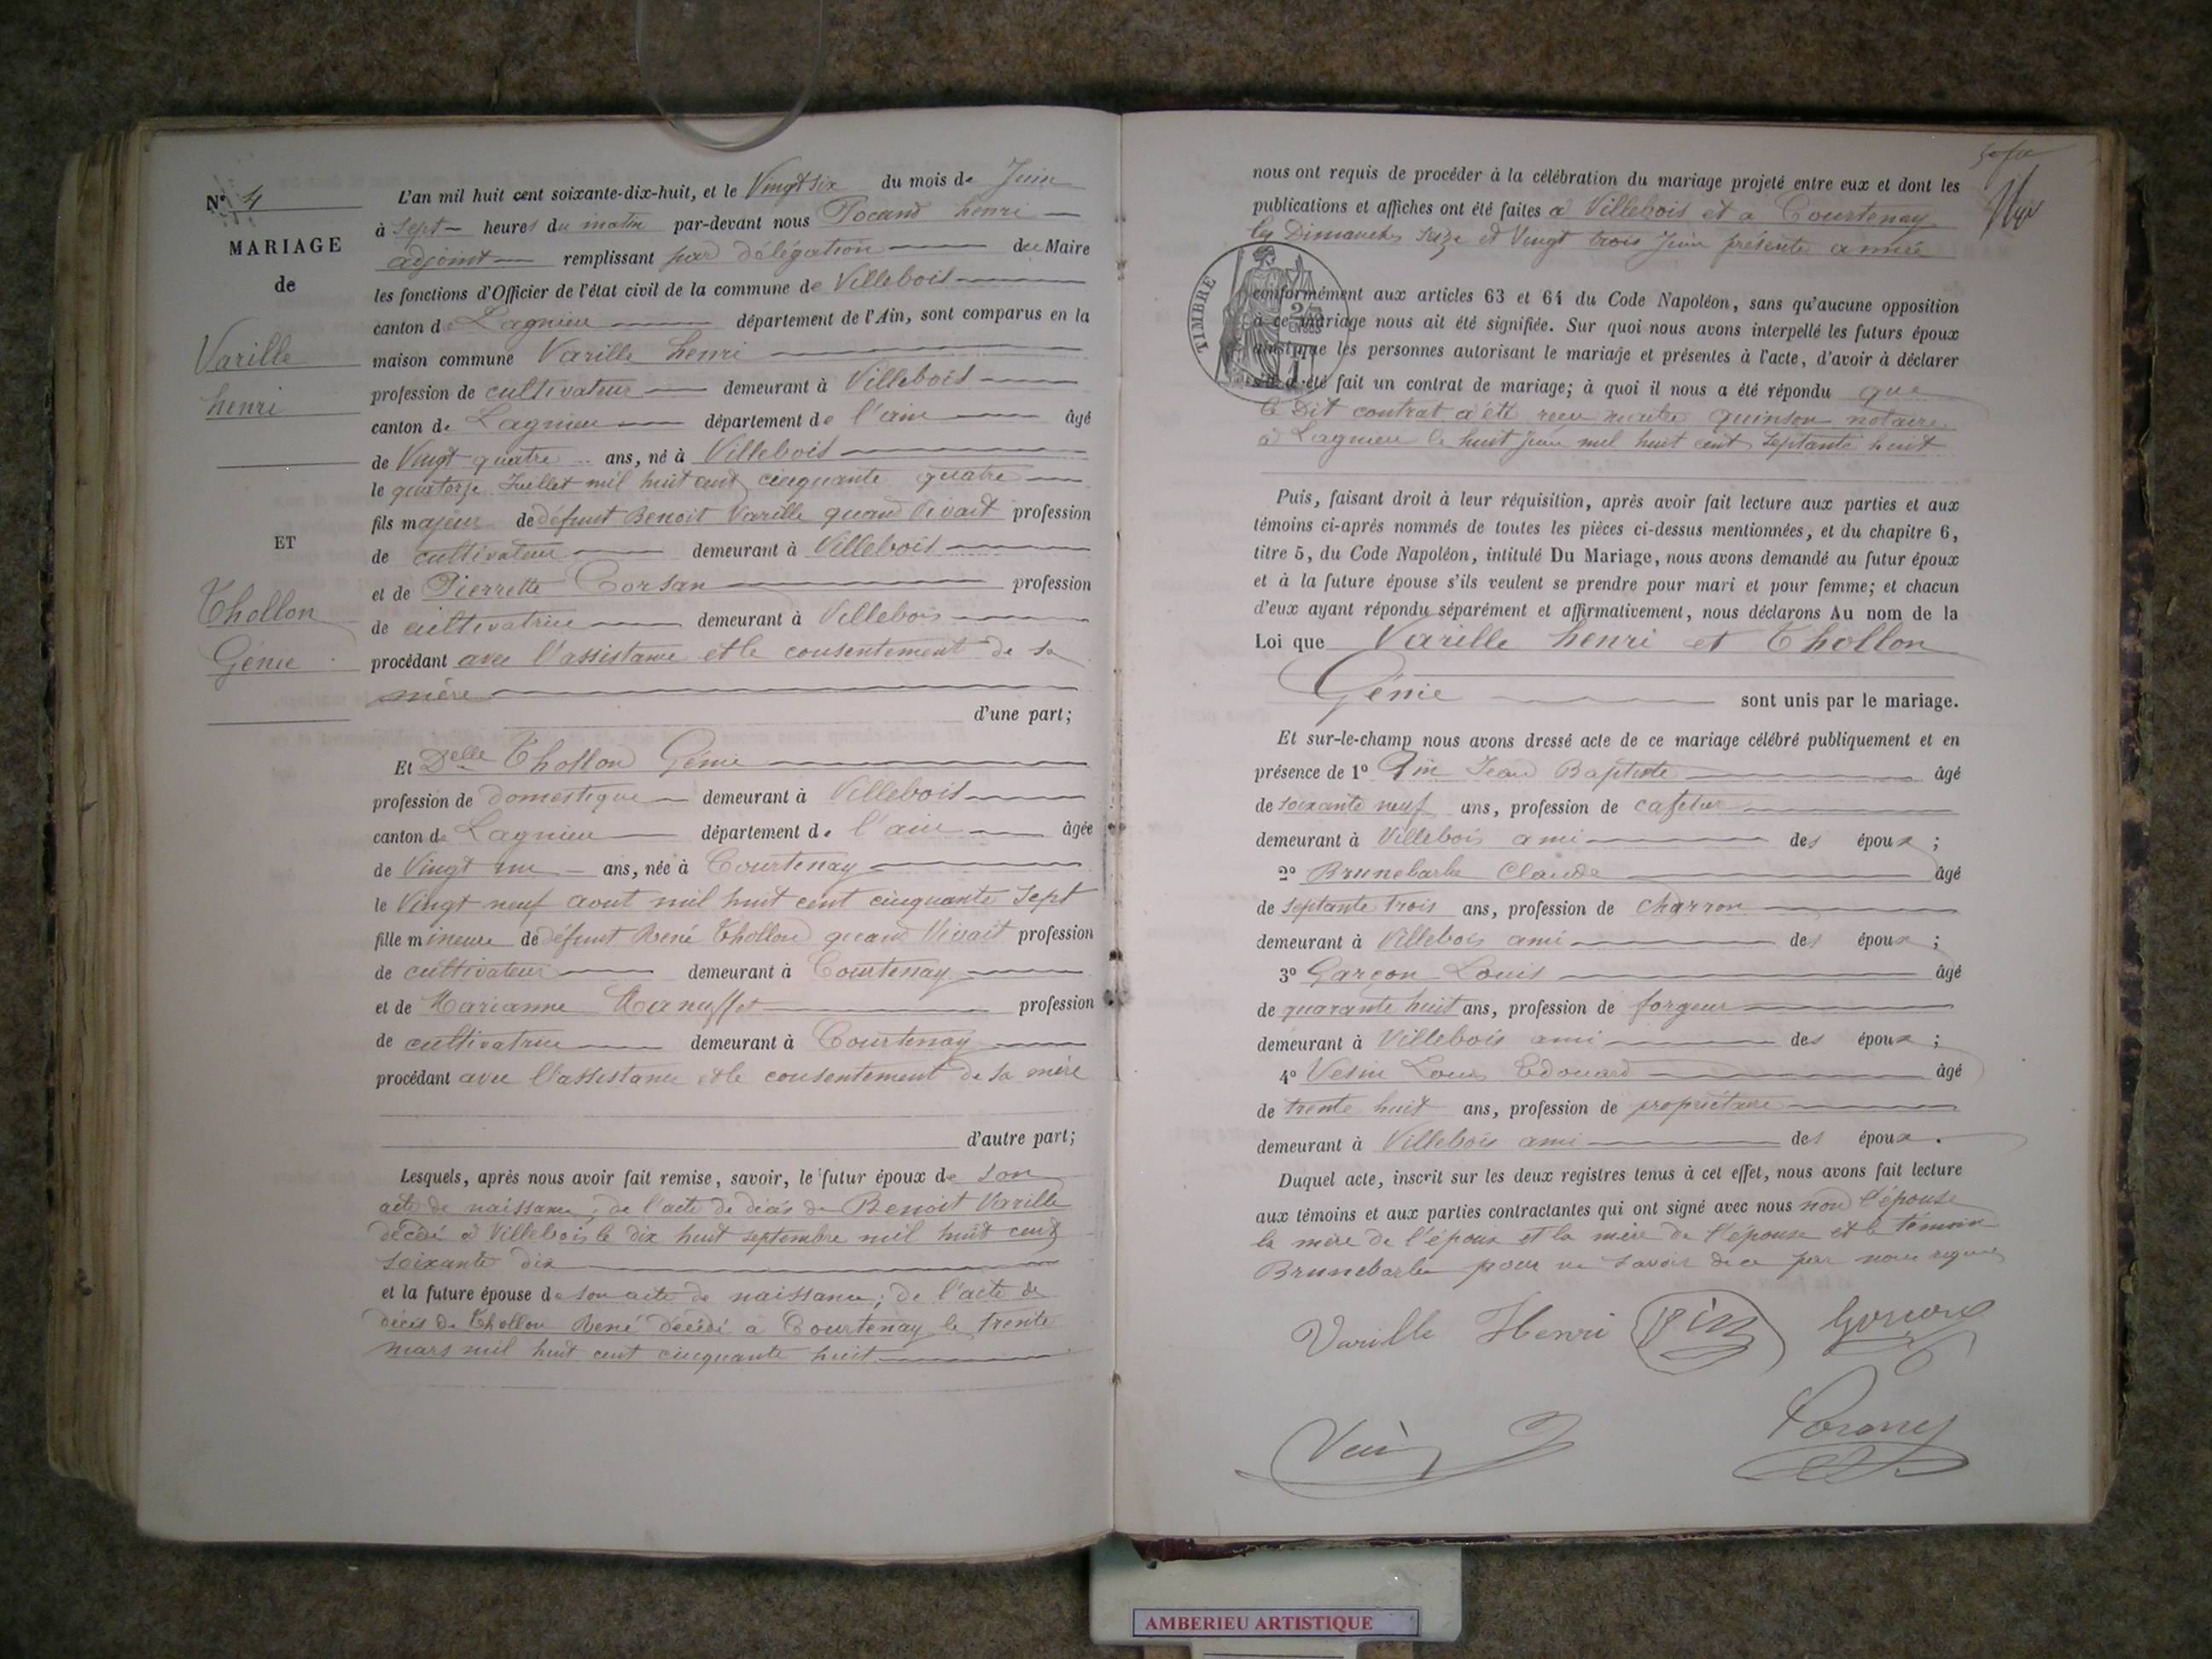 N° 4
MARIAGE
de
Varille
henri
ET
Thollon
Génie
L'an mil huit cent soixante-dix-huit, et le Vingt six du mois de Juin
à sept heures du matin par-devant nous Pocand henri
adjoint remplissant par délégation du Maire
les fonctions d'Officier de l'état civil de la commune de Villebois
canton de Lagnieu département de l'Ain, sont comparus en la
maison commune Varille henri
profession de cultivateur demeurant à Villebois
canton de Lagnieu département de l'ain âgé
de Vingt quatre ans, né à Villebois
le quatorze Juillet mil huit cent cinquante quatre
fils majeur de défunt Benoit Varille quand Vivait profession
de cultivateur demeurant à Villebois
et de Pierrette Corsan profession
de cultivatrice demeurant à Villebois
procédant avec l'assistance et le consentement de sa
mère
d'une part;
Et Delle Thollon Génie
profession de domestique demeurant à Villebois
canton de Lagnieu département de l'ain âgée
de Vingt un ans, née à Courtenay
le Vingt neuf aout mil huit cent cinquante sept
fille mineure de défunt René Thollon quand Vivait profession
de cultivateur demeurant à Courtenay
et de Marianne profession
de cultivatrice demeurant à Courtenay
procédant avec l'assistance et le consentement de sa mère
d'autre part;
Lesquels, après nous avoir fait remise, savoir, le futur époux de son
acte de naissance; de l'acte de décès de Benoit Varille
décédé à Villebois le dix huit septembre mil huit cent
soixante dix
et la future épouse de son acte de naissance; de l'acte de
décès de Thollon René décédé a Courtenay le trente
mars mil huit cent cinquante huit
nous ont requis de procéder à la célébration du mariage projeté entre eux et dont les
publications et affiches ont été faites à Villebois et a Courtenay
les Dimanches seize et Vingt trois Juin présente année
TIMBRE
conformément aux articles 63 et 64 du Code Napoléon, sans qu'aucune opposition
à ce mariage nous ait été signifiée. Sur quoi nous avons interpellé les futurs époux
ainsi que les personnes autorisant le mariage et présentes à l'acte, d'avoir à déclarer
s'il a été fait un contrat de mariage; à quoi il nous a été répondu que
le Dit contrat a été reçu maitre quinson notaire
à Lagnieu le huit Juin mil huit cent septante huit
Puis, faisant droit à leur réquisition, après avoir fait lecture aux parties et aux
témoins ci-après nommés de toutes les pièces ci-dessus mentionnées, et du chapitre 6,
titre 5, du Code Napoléon, intitulé Du Mariage, nous avons demandé au futur époux
et à la future épouse s'ils veulent se prendre pour mari et pour femme; et chacun
d'eux ayant répondu séparément et affirmativement, nous déclarons Au nom de la
Loi que Varille henri et Thollon
Génie sont unis par le mariage.
Et sur-le-champ nous avons dressé acte de ce mariage célébré publiquement et en
présence de 1° Pin Jean Baptiste âgé
de soixante neuf ans, profession de cafetier
demeurant à Villebois ami des époux;
2° Brunebarbe Claude âgé
de septante trois ans, profession de charron
demeurant à Villebois ami des époux;
3° Garçon Louis âgé
de quarante huit ans, profession de forgeur
demeurant à Villebois ami des époux;
4° Vesin Louis Edouard âgé
de trente huit ans, profession de propriétaire
demeurant à Villebois ami des époux.
Duquel acte, inscrit sur les deux registres tenus à cet effet, nous avons fait lecture
aux témoins et aux parties contractantes qui ont signé avec nous non l'épouse
la mère de l'époux et la mère de l'épouse et le témoin
Brunebarbe pour ne savoir de ce par nous requis
Varille Henri Pin
AMBERIEU ARTISTIQUE